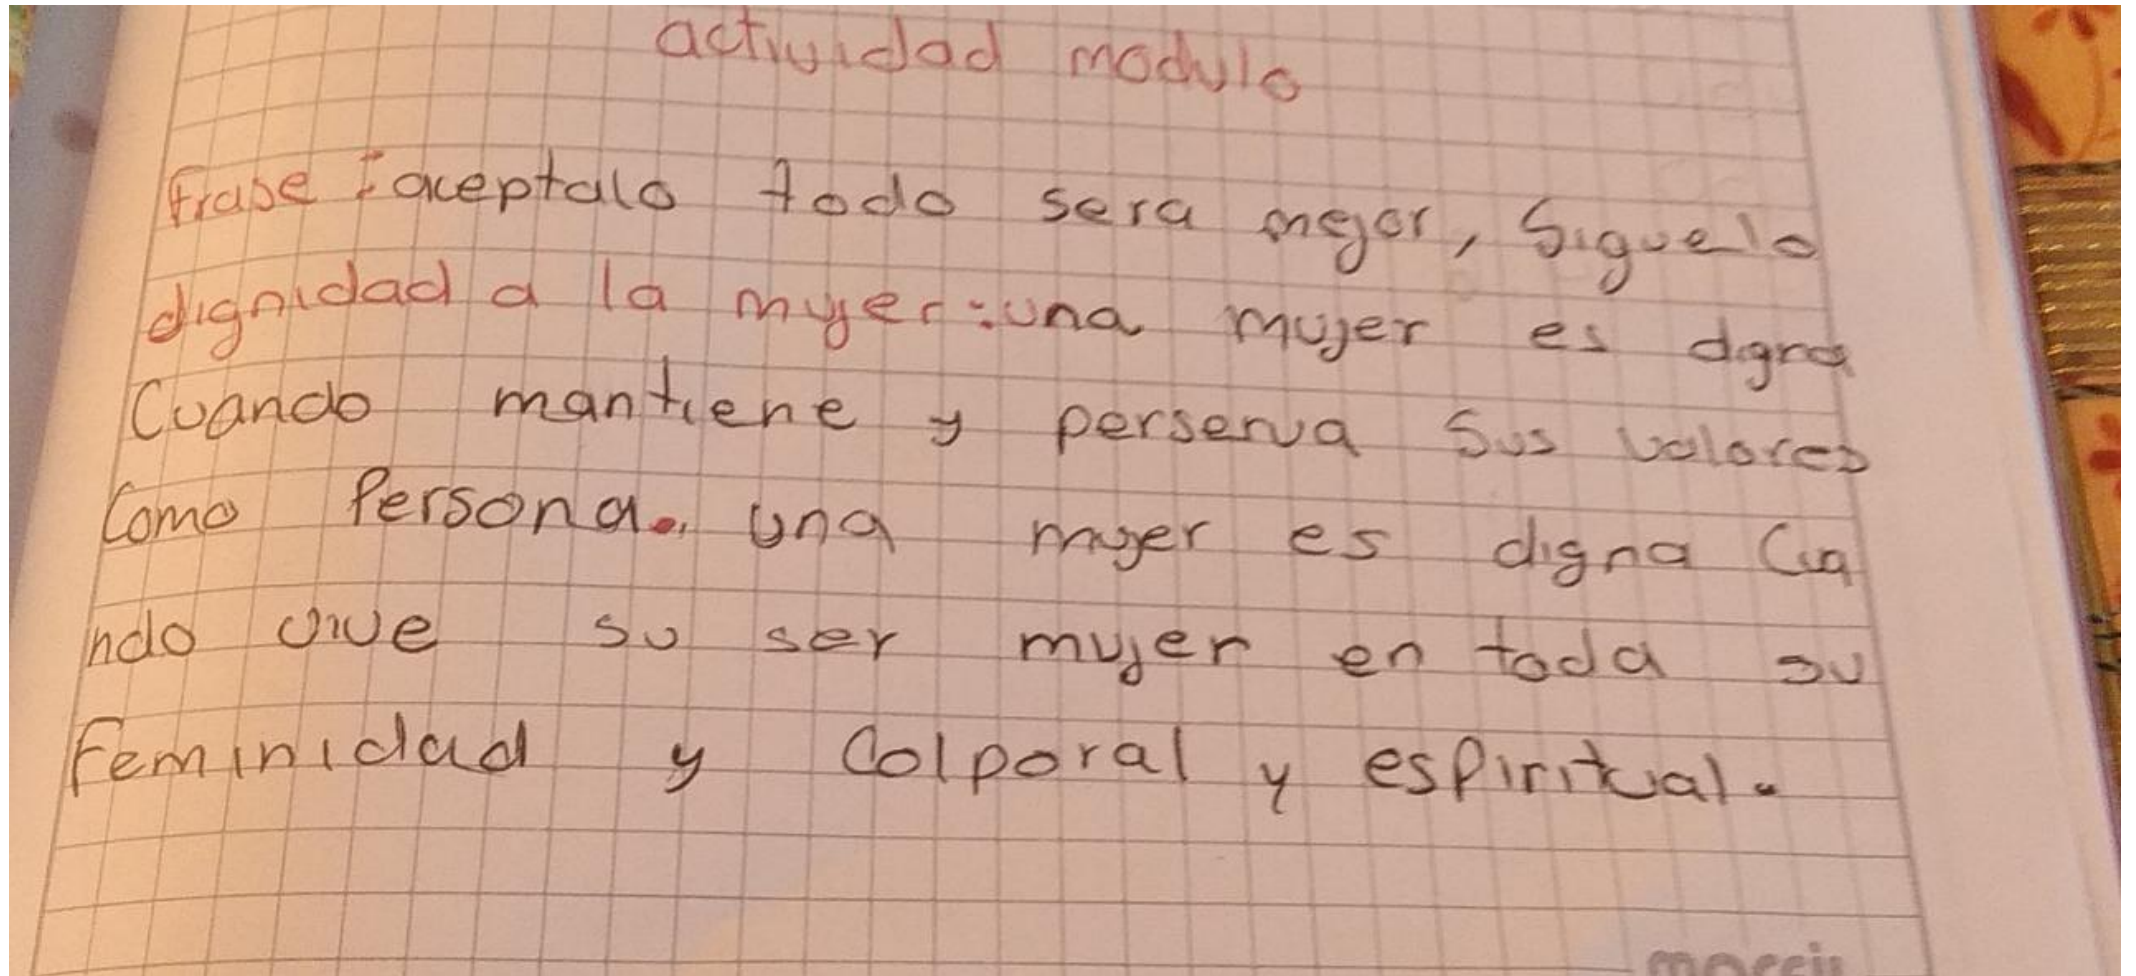 actividad modulo
frase: aceptalo todo sera mejor, Siguelo
dignidad a la mujer: una mujer es digna
Cuando mantiene y perserva Sus valores
Como Persona. una mujer es digna Cua
ndo vive su ser mujer en toda su
Feminidad y Colporal y espiritual.